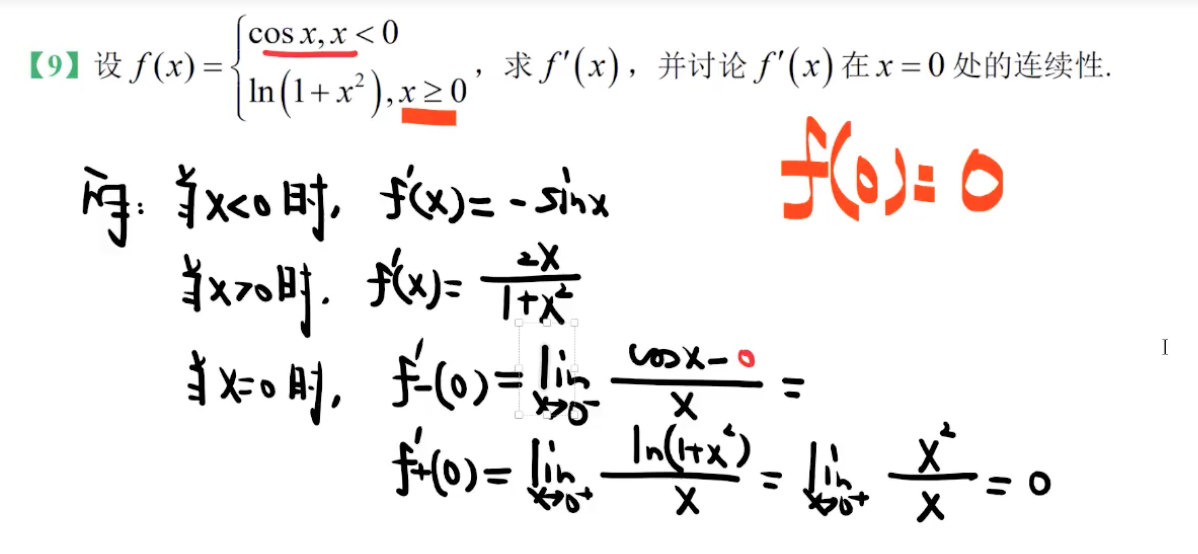 【9】设 f(x) = { cos x, x < 0
ln(1 + x²), x ≥ 0 , 求 f′(x), 并讨论 f′(x) 在 x = 0 处的连续性.
f(0) = 0
解: 当x<0时, f′(x) = -sinx
当x>0时, f′(x) = 2x/(1+x²)
当x=0时, f′₋(0) = lim x→0⁻ (cosx-0)/x =
f′₊(0) = lim x→0⁺ ln(1+x²)/x = lim x→0⁺ x²/x = 0